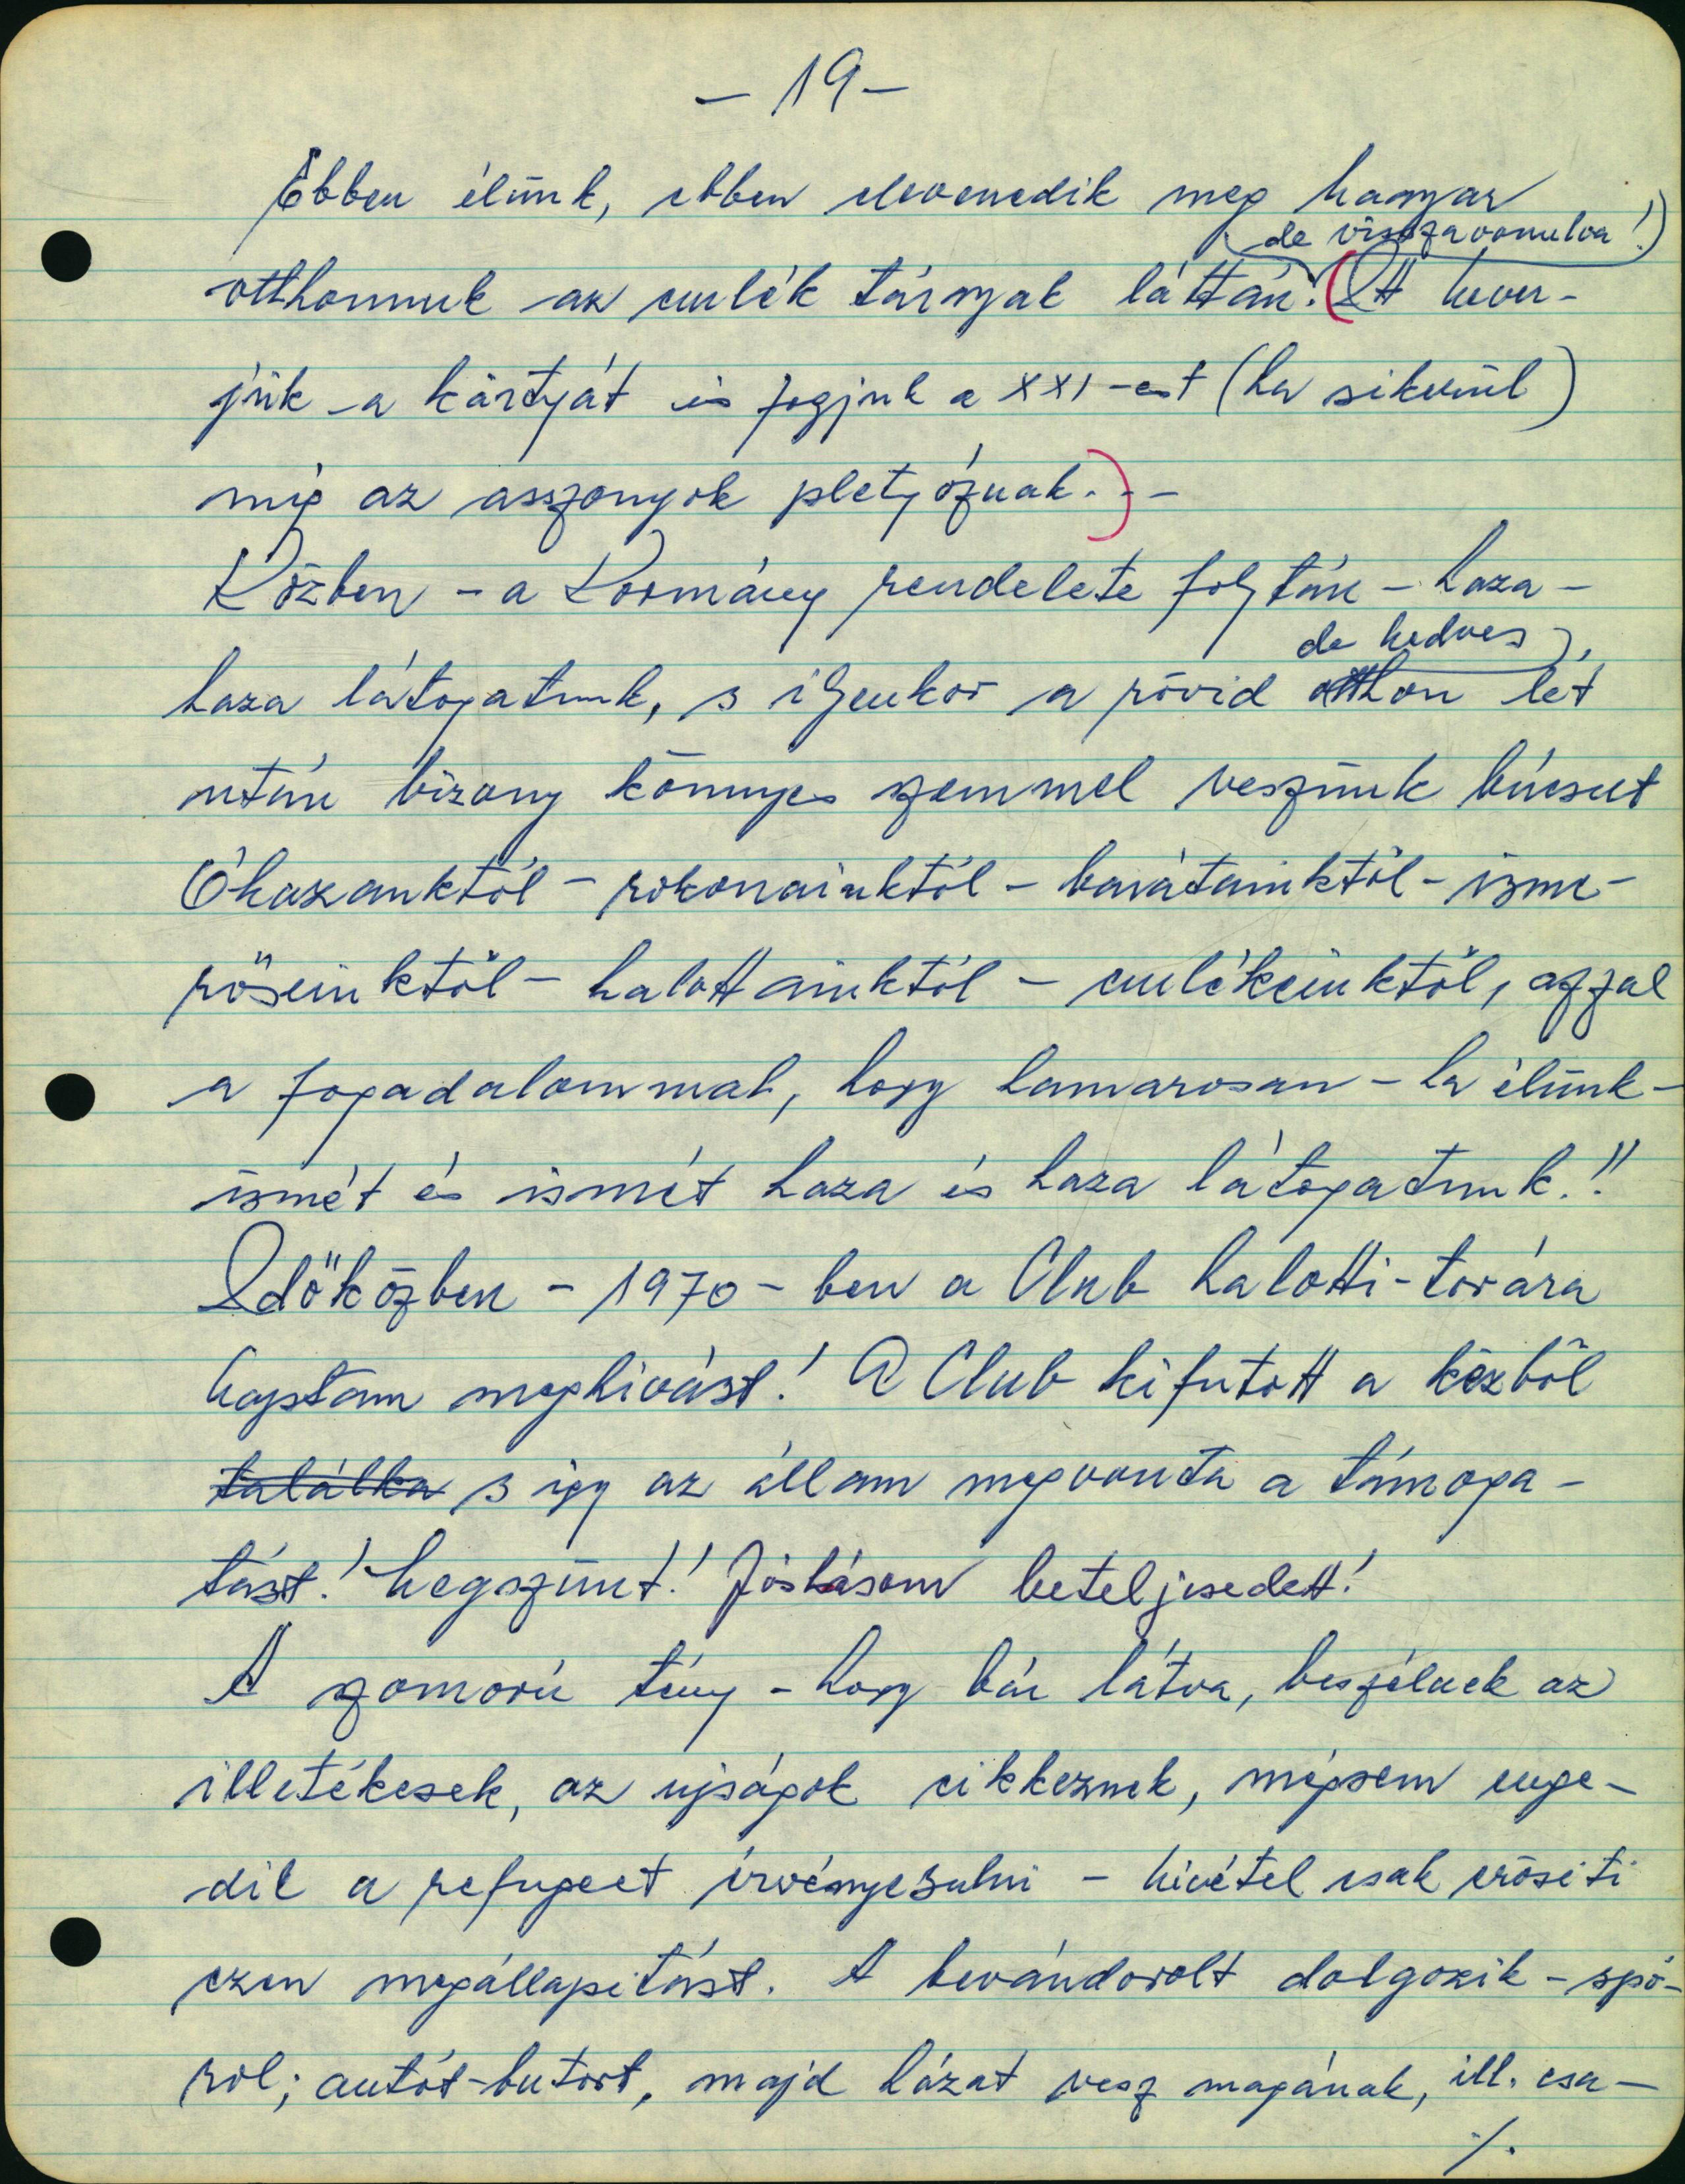 - 19 -
Ebben élünk, ebben elevenedik meg magyar
(de visszavonulva!)
otthonunk az emlék tárgyak láttán. (Itt kever-
jük a kártyát és fogjuk a XXI-est (ha sikerül)
mig az asszonyok pletyóznak.) --
Közben - a Kormány rendelete folytán - haza-
de kedves
haza látogatunk, s ilyenkor a rövid otthon lét
után bizony könnyes szemmel veszünk búcsut
Óhazánktól - rokonainktól - barátainktól - isme-
rőseinktől - halottainktól - emlékeinktől, azzal
a fogadalommal, hogy hamarosan - ha élünk -
ismét és ismét haza és haza látogatunk.!!
Időközben - 1970-ben a Club halotti-torára
kaptam meghivást! A Club kifutott a kézből
találka s igy az állam megvonta a támoga-
tást! Megszünt! Jóslásom beteljesedett!
A szomorú tény - hogy bár látva, beszélnek az
illetékesek, az ujságok cikkeznek, mégsem enge-
dik a refugeet érvényesulni - kivétel csak erősiti
ezen megállapitást. A bevándorolt dolgozik - spó-
rol; autót-butort, majd házat vesz magának, ill. csa-
./.